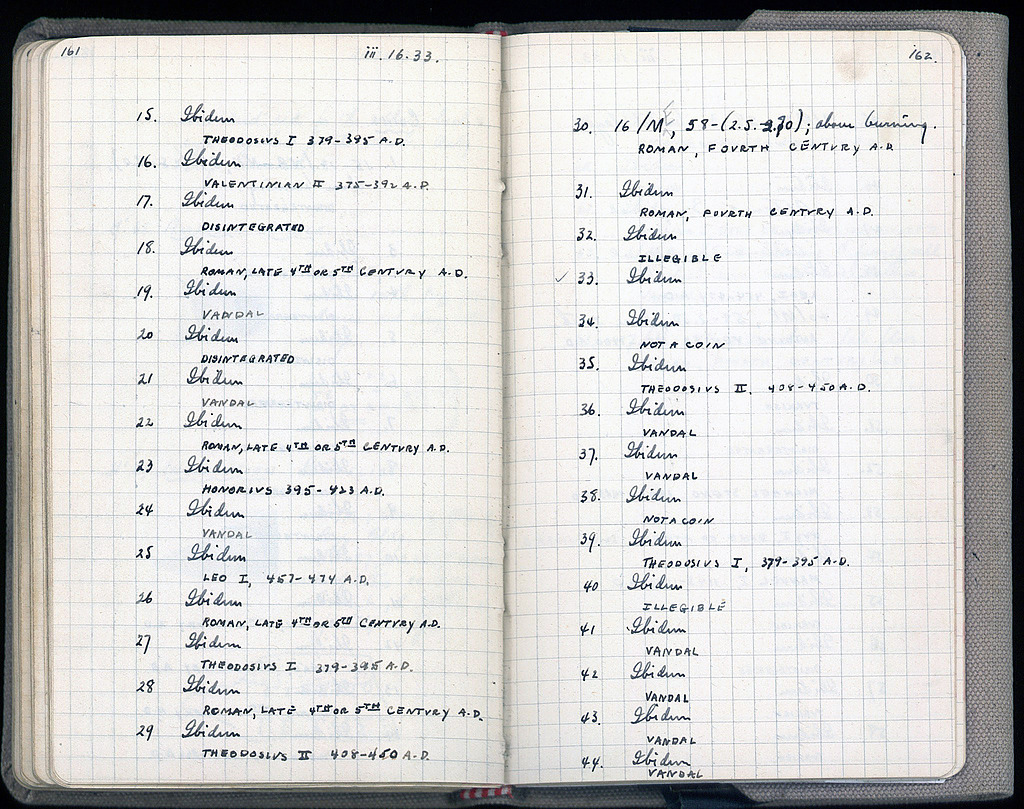 161
iii. 16. 33.
15. Ibidem
THEODOSIVS I 379-395 A.D.
16. Ibidem
VALENTINIAN II 375-392 A.D.
17. Ibidem
DISINTEGRATED
18. Ibidem
ROMAN, LATE 4TH OR 5TH CENTVRY A.D.
19. Ibidem
VANDAL
20 Ibidem
DISINTEGRATED
21 Ibidem
VANDAL
22 Ibidem
ROMAN, LATE 4TH OR 5TH CENTVRY A.D.
23 Ibidem
HONORIVS 395-423 A.D.
24 Ibidem
VANDAL
25 Ibidem
LEO I, 457-474 A.D.
26 Ibidem
ROMAN, LATE 4TH OR 5TH CENTVRY A.D.
27 Ibidem
THEODOSIVS I 379-395 A.D.
28 Ibidem
ROMAN, LATE 4TH OR 5TH CENTVRY A.D.
29 Ibidem
THEODOSIVS II 408-450 A.D.
162.
30. 16/M, 58-(2.5. ); above burning.
ROMAN, FOVRTH CENTVRY A.D
31. Ibidem
ROMAN, FOVRTH CENTVRY A.D.
32. Ibidem
ILLEGIBLE
✓ 33. Ibidem
34. Ibidem
NOT A COIN
35. Ibidem
THEODOSIVS II, 408-450 A.D.
36. Ibidem
VANDAL
37. Ibidem
VANDAL
38. Ibidem
NOT A COIN
39. Ibidem
THEODOSIVS I, 379-395 A.D.
40 Ibidem
ILLEGIBLE
41. Ibidem
VANDAL
42. Ibidem
VANDAL
43. Ibidem
VANDAL
44. Ibidem
VANDAL